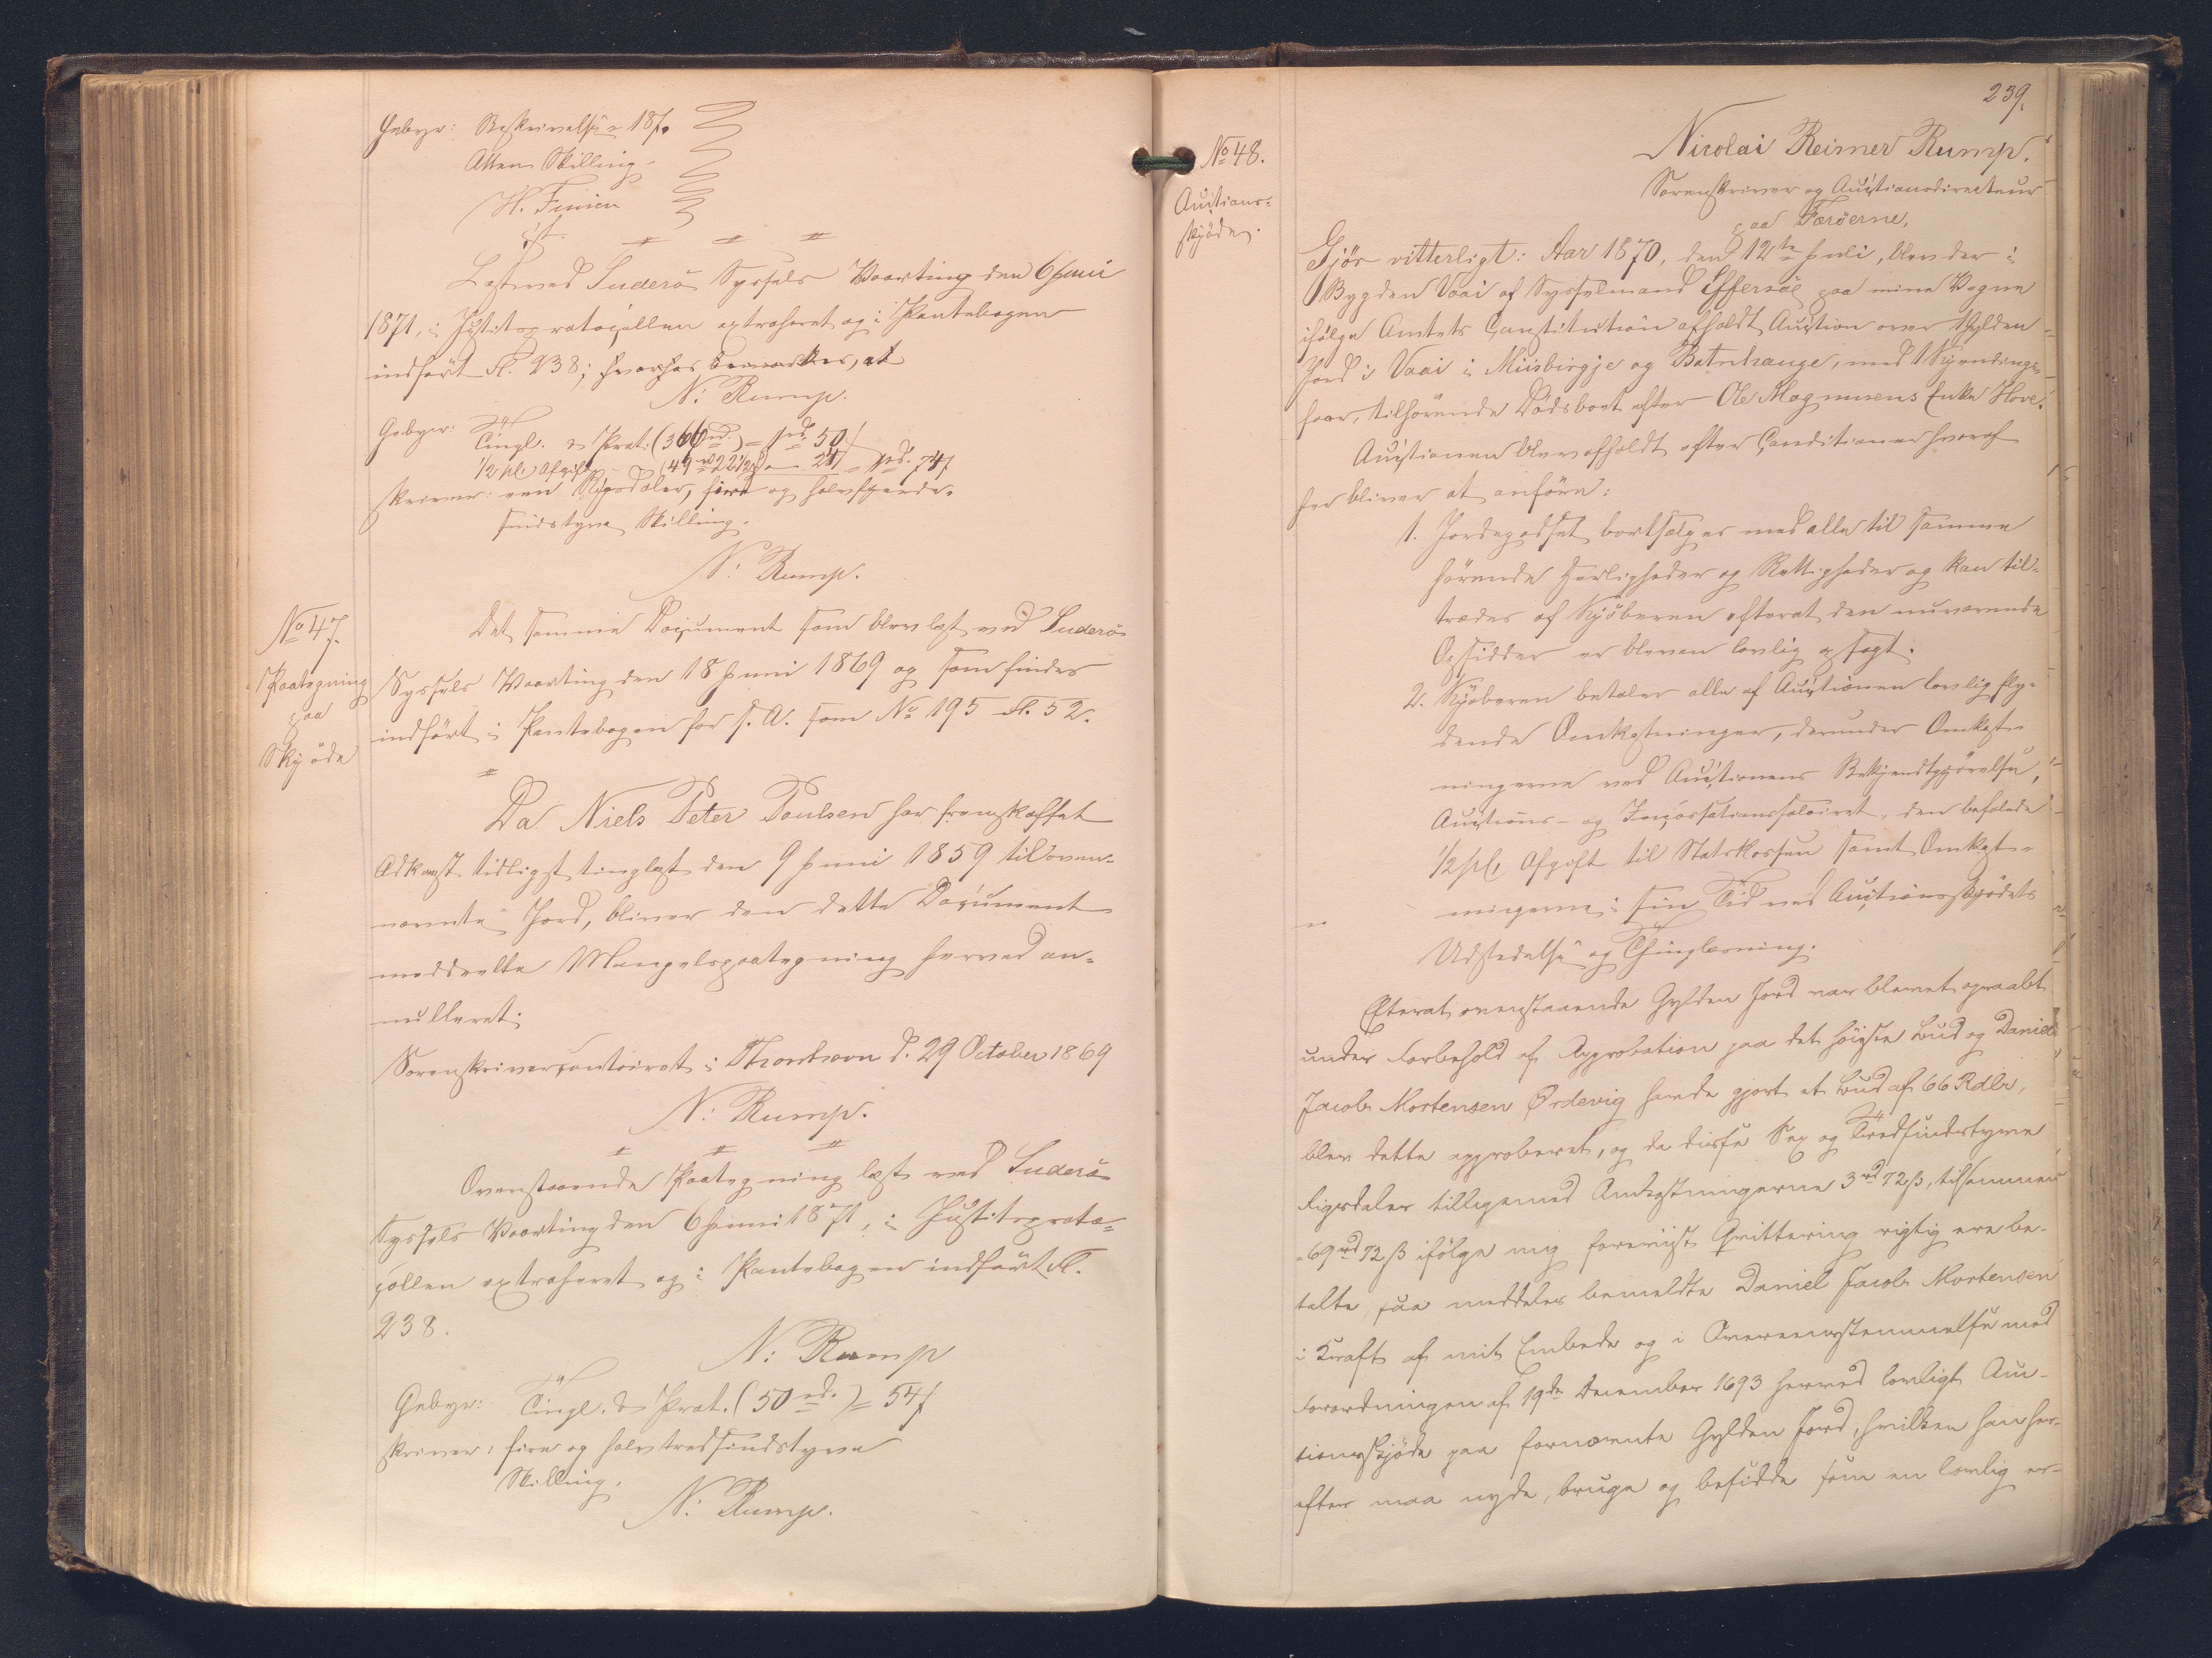 Gebyr: Beskrivelse 18 ß
Atten Skilling.
H. Finsen
cst.
Læst ved Suderö Syssels Vaarting den 6 Juni
1871, i Justitsprotocollen extraheret og i Pantebogen
indført Fl. 238; hvorhos bemærkes, at
N: Rump.
Gebyr: Tingl. & Prot. (366 rd.) = 1 rd. 50 ß
1/2 pCt. Afgift (49 rd 22 1/2 ß) - 24 ß = 1 rd. 74 ß
skriver: een Rigsdaler, fire og halvfjerde-
sindstyve Skilling.
N: Rump.
No 47.
Paategning
paa
Skjøde
Det samme Document som blev læst ved Suderö
Syssels Vaarting den 18 Juni 1869 og som findes
indført i Pantebogen for s. A. som No 195 Fl. 52.
Da Niels Peter Poulsen har fremskaffet
Adkomst tidligst tinglæst den 9 Juni 1859 til oven-
nævnte Jord, bliver den dette Document
meddeelte Mangelspaategning herved an-
nulleret.
Sorenskrivercontoiret i Thorshavn d. 29 October 1869
N: Rump.
Ovenstaaende Paategning læst ved Suderö
Syssels Vaarting den 6 Juni 1871, i Justitsproto-
collen extraheret og i Pantebogen indført Fl.
238.
N: Rump
Gebyr: Tingl. & Prot. (50 rd.) = 54 ß
skriver: fire og halvtredsindstyve
Skilling.
N: Rump.
239.
No 48.
Auctions-
skjøde.
Nicolai Reimer Rump.
Sorenskriver og Auctionsdirecteur
paa Færöerne,
Gjör vitterligt: Aar 1870, den 12te Juli, blev der i
Bygden Vaai af Sysselmand Effersöe paa mine Vegne
ifølge Amtets Constitution afholdt Auction over 1 Gylden
Jord i Vaai i Miisbirgje og Botnhauge, med 1 Kjendings-
faar, tilhörende Dödsboet efter Ole Magnusens Enke Hove.
Auctionen blev afholdt efter Conditioner hvoraf
her bliver at anføre:
1. Jordegodset bortsælges med alle til samme
hörende Herligheder og Rettigheder og kan til-
trædes af Kjöberen efterat den nuværende
Opsidder er bleven lovlig opsagt.
2. Kjöberen betaler alle af Auctionen lovlig fly-
dende Omkostninger, derunder Omkost-
ningerne ved Auctionens Bekjendtgjørelse,
Auctions- og Incassationssalairet, den befalede
1/2 pCt. Afgift til Statskassen samt Omkost-
ningerne i sin Tid ved Auctionsskjödets
Udstedelse og Thinglæsning.
Efterat ovenstaaende Gylden Jord var blevet opraabt
under Forbehold af Approbation paa det höieste Bud og Daniel
Jacob Mortensen Ørdevig havde gjort et Bud af 66 Rdlr,
blev dette approberet, og da disse Sex og Tredsindstyve
Rigsdaler tilligemed Omkostningerne 3 rd 72 ß, tilsammen
69 rd 72 ß ifølge mig foreviist Qvittering rigtig ere be-
talte, saa meddeles bemeldte Daniel Jacob Mortensen
i Kraft af mit Embede og i Overeensstemmelse med
Forordningen af 19de December 1693 herved lovligt Auc-
tionsskjöde paa fornævnte Gylden Jord, hvilken han her-
efter maa nyde, bruge og besidde som en lovlig er-